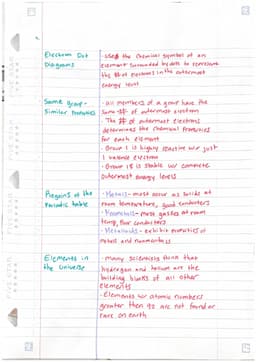 Electron Dot Diagrams
- uses the chemical symbol of an
element surrounded by dots to represent
the # of electrons in the outermost
energy level
Same group - Similar Properties
- all members of a group have the
same # of outermost electrons
- The # of outermost electrons
determines the chemical properties
for each element
- Group 1 is highly reactive w/ just
1 valence electron
- Group 18 is stable w/ complete
outermost energy levels
Regions of the Periodic Table
- Metals - most occur as solids at
room temperature, good conductors
- Nonmetals - most gasses at room
temp, poor conductors
- Metalloids - exhibit properties of
metals and nonmetals
Elements in the Universe
- Many scientists think that
hydrogen and helium are the
building blocks of all other
elements
- Elements w/ atomic numbers
greater than 92 are not found or
rare on earth
FIVE STAR
FIVE STAR
FIVE STAR